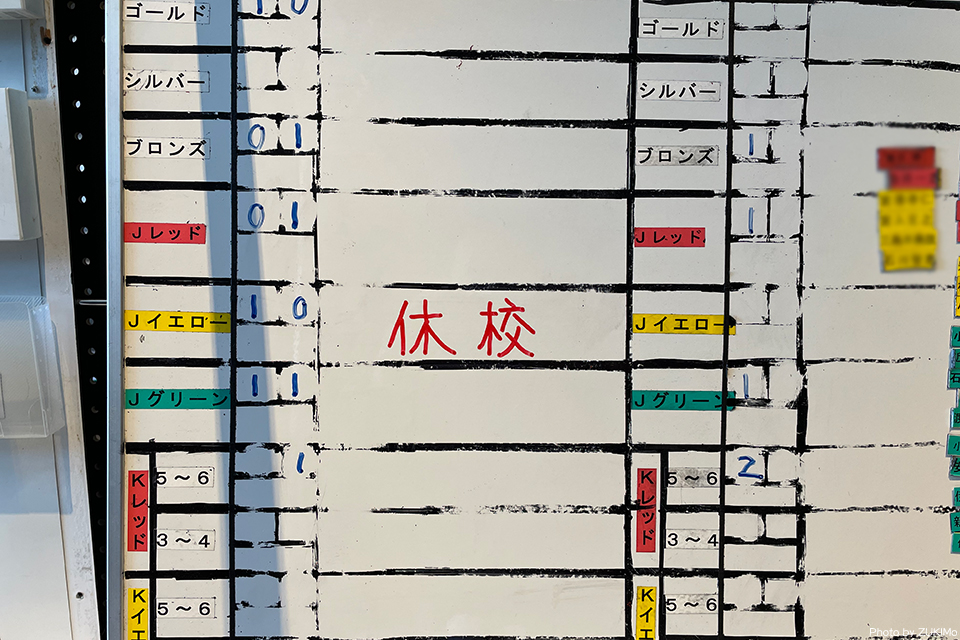 ゴールド 1 0
ゴールド
シルバー
シルバー
ブロンズ 0 1
ブロンズ 1
Jレッド 0 1
Jレッド 1
Jイエロー 1 0
休校
Jイエロー
Jグリーン 1 1
Jグリーン 1
Kレッド
5～6 1
3～4
Kレッド
5～6 2
3～4
Kイエ
5～6
Kイエ
5～6
Photo by ZUKIMo